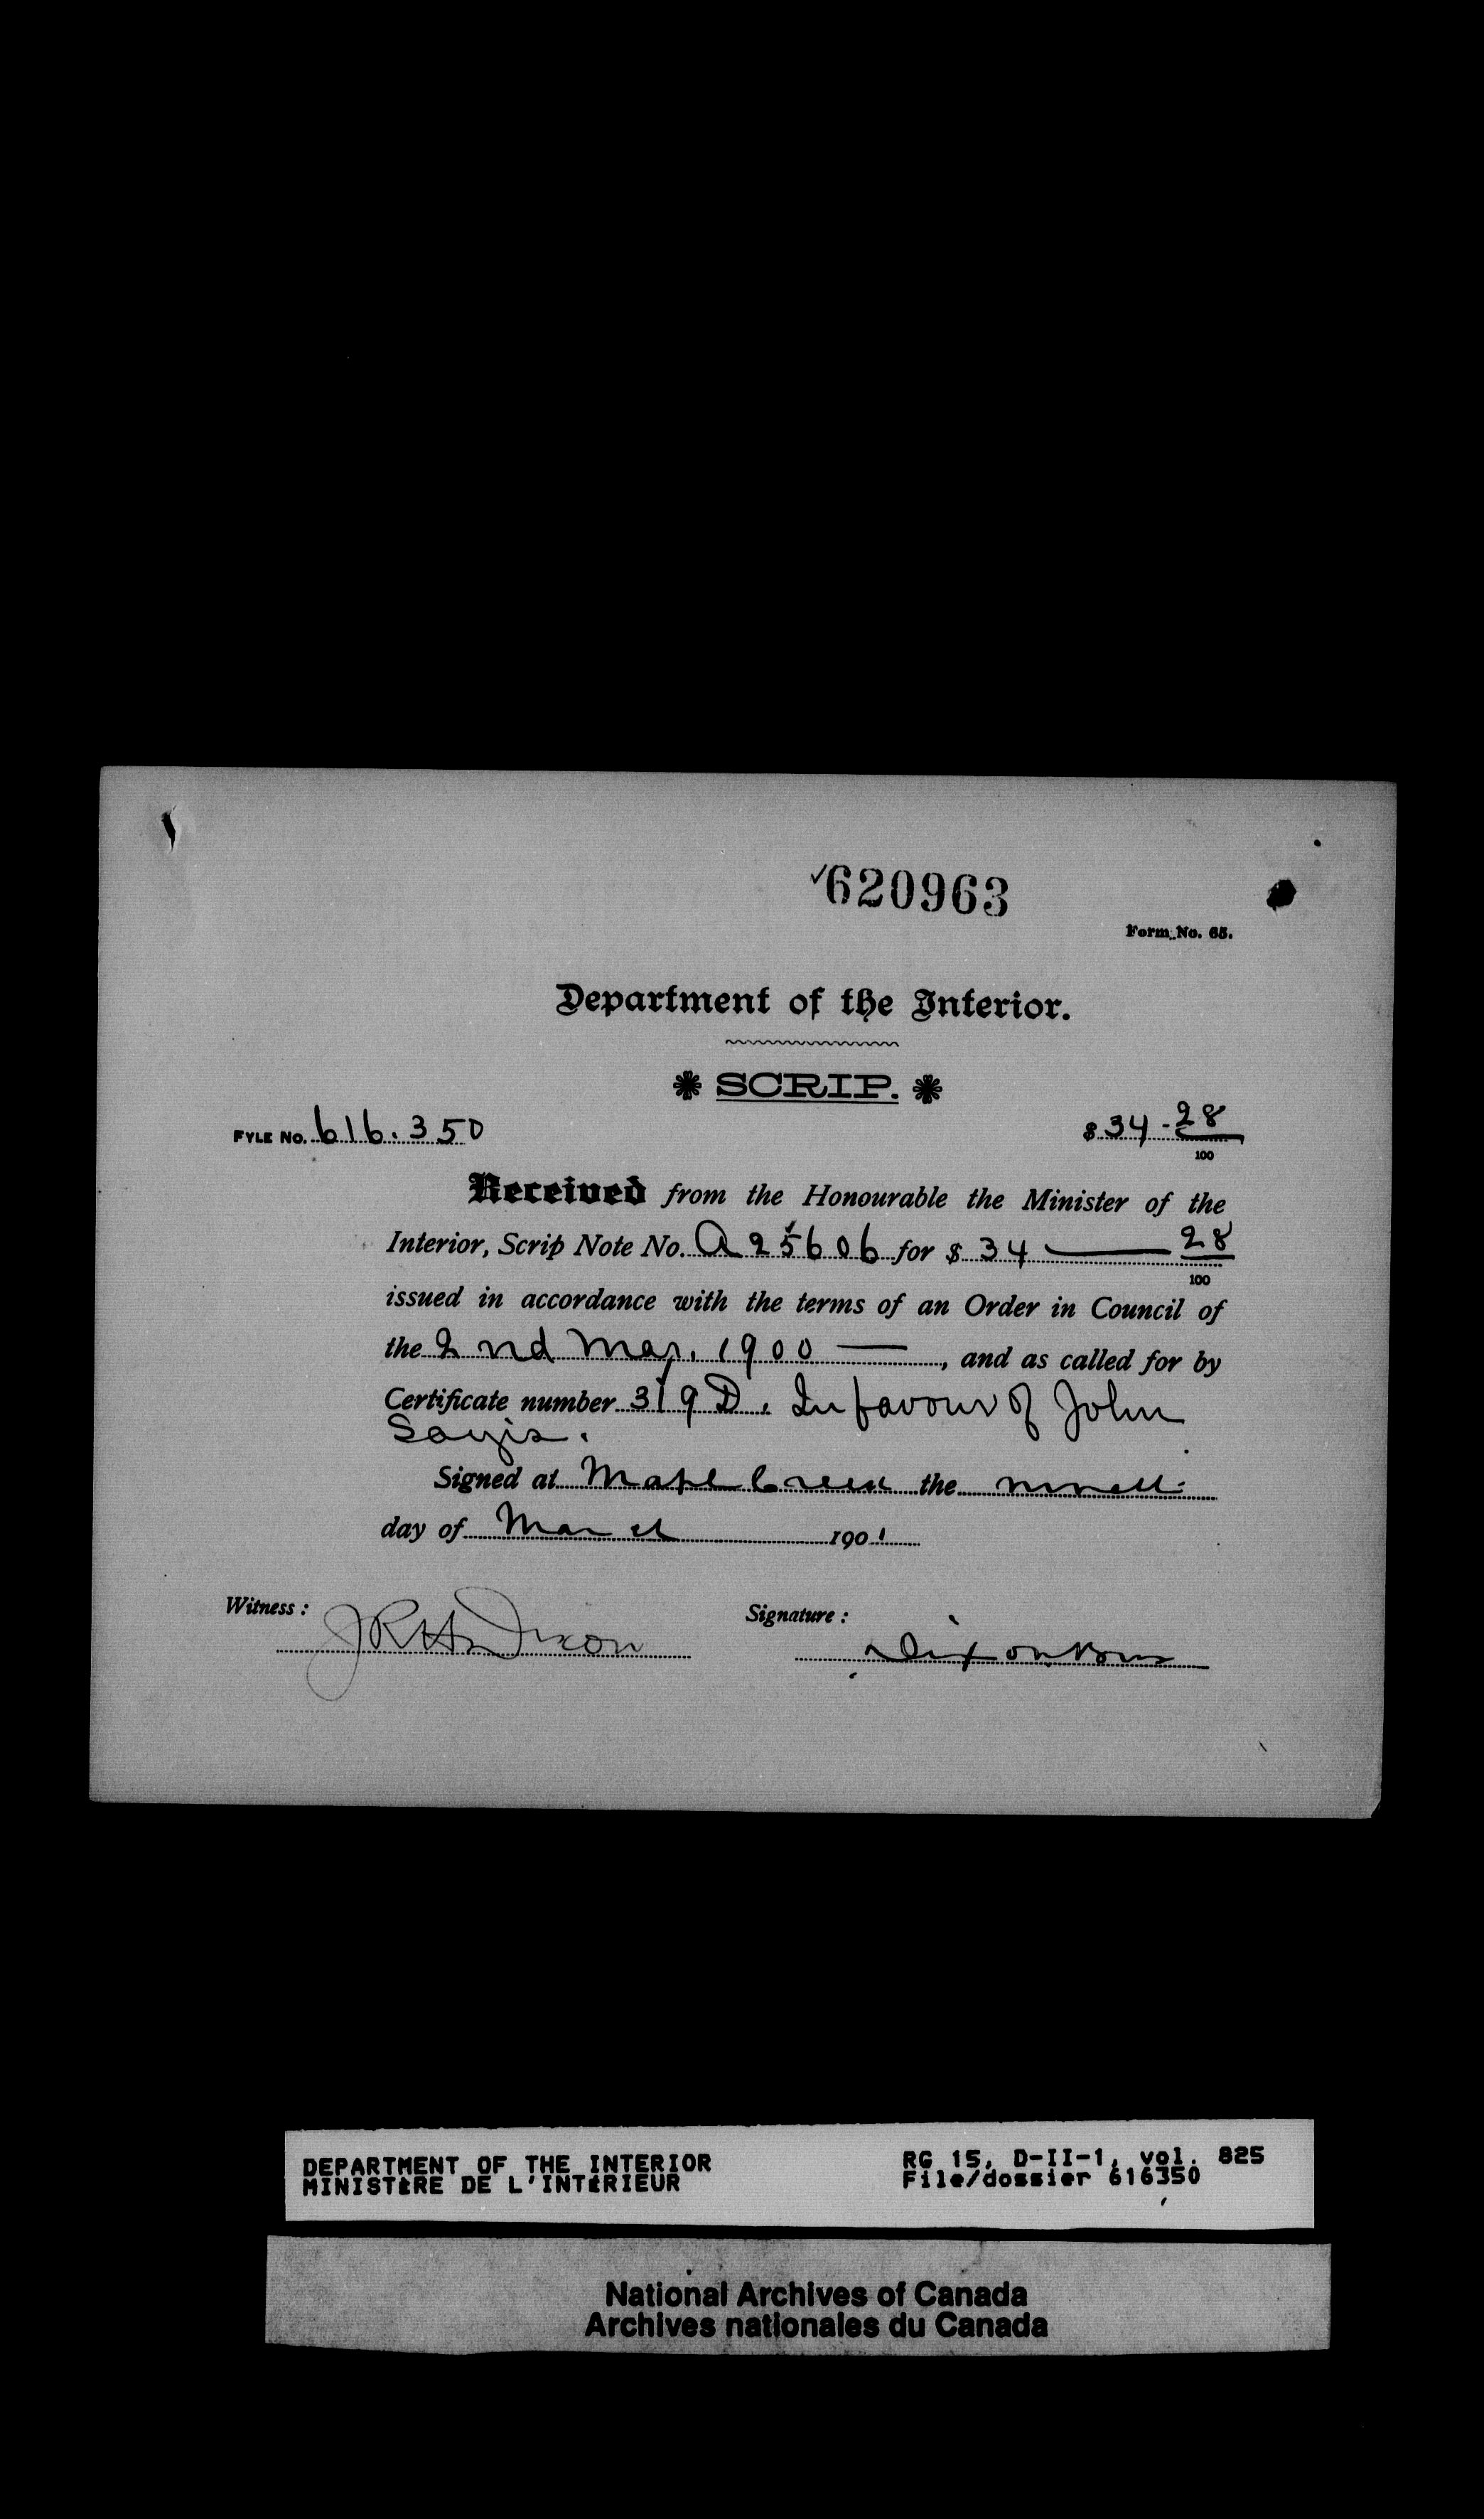 ✓620963
Form No. 65.
Department of the Interior.
SCRIP.
FYLE No. 616.350
$ 34-28/100
Received from the Honourable the Minister of the
Interior, Scrip Note No. A 25606 for $ 34 — 28/100
issued in accordance with the terms of an Order in Council of
the 2nd Mar. 1900 —, and as called for by
Certificate number 319 D. In favour of John
Sayis.
Signed at Maple Creek the ninth
day of March 1901
Witness: JRH Dixon
Signature: Dixon Bros
DEPARTMENT OF THE INTERIOR
MINISTÈRE DE L'INTÉRIEUR
RG 15, D-II-1, vol. 825
File/dossier 616350
National Archives of Canada
Archives nationales du Canada